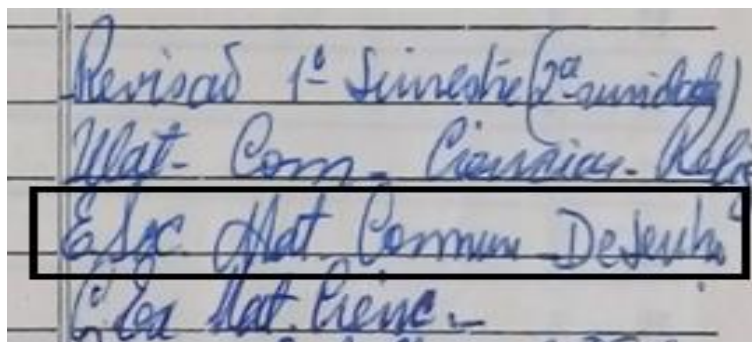 Revisão 1º Simestre (2ª unidade)
Mat- Com- Ciencias- Relig
E Soc. Mat. Commun Desenho
Mat. Cienc.-